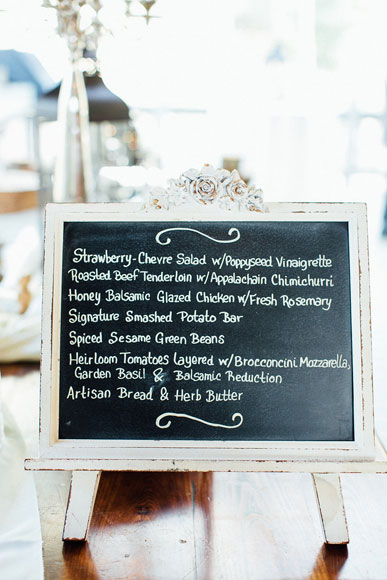 Strawberry-Chevre Salad w/Poppyseed Vinaigrette
Roasted Beef Tenderloin w/Appalachain Chimichurri
Honey Balsamic Glazed Chicken w/Fresh Rosemary
Signature Smashed Potato Bar
Spiced Sesame Green Beans
Heirloom Tomatoes Layered w/Brocconcini Mozzarella,
Garden Basil & Balsamic Reduction
Artisan Bread & Herb Butter